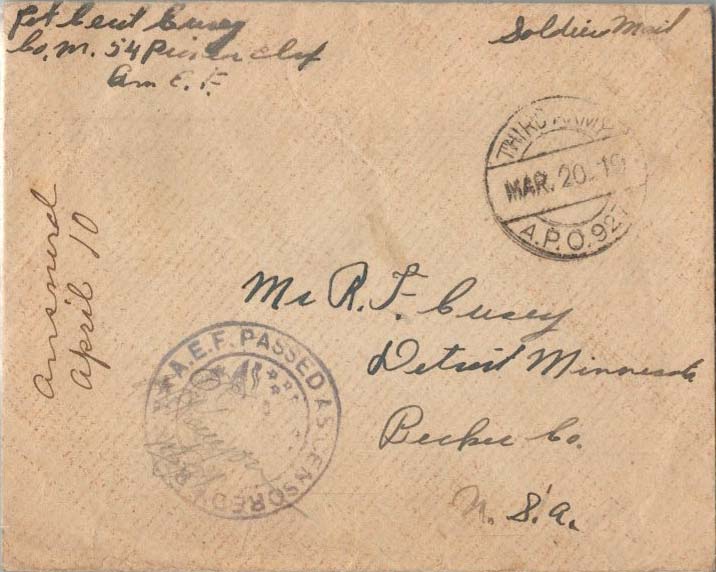 Pvt Cecil Cusey
Co. M. 54 Pioneer Inf
Am E. F.
Soldiers Mail
THIRD ARMY
MAR. 20. 19
A.P.O. 927
Answered
April 10
Mr R. F. Cusey
Detroit Minnesota
Becker Co.
U. S. A.
A.E.F. PASSED AS CENSORED